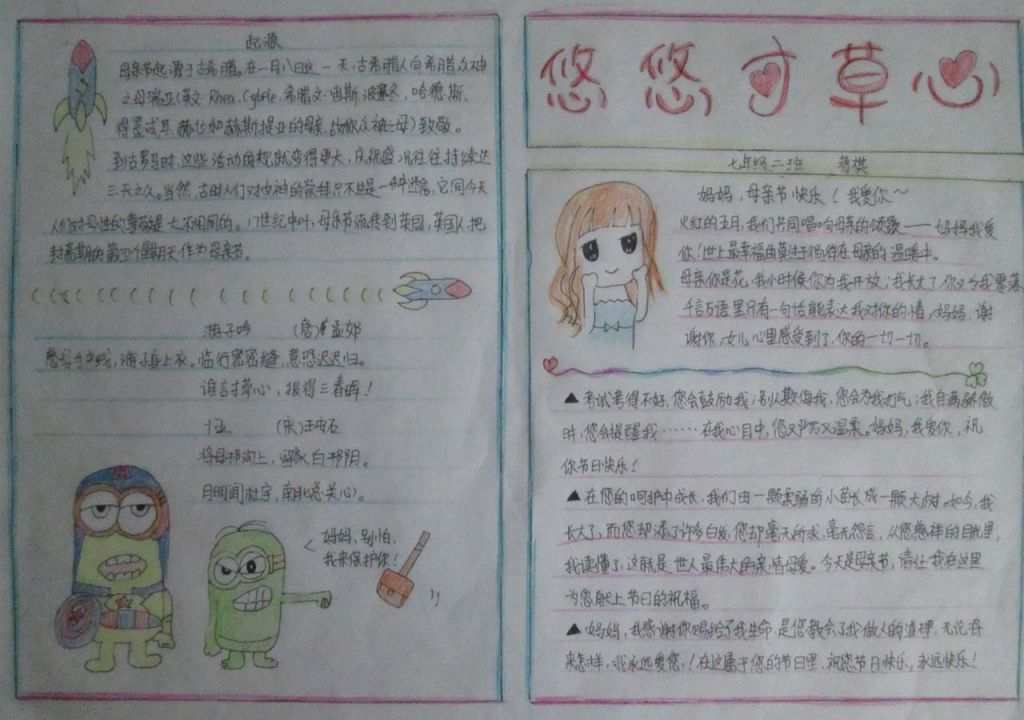 起源
母亲节起源于古希腊。在一月八日这一天,古希腊人向希腊众神
之母瑞亚(英文:Rhea、Cybele,希腊文:宙斯、波塞冬、哈德斯、
得墨忒耳、赫拉和赫斯提亚的母亲,故称众神之母)致敬。
到古罗马时,这些活动的规模就变得更大,庆祝盛况往往持续达
三天之久。当然,古时人们对女神的崇拜只不过是一种迷信,它同今天
人们对母性的尊敬是大不相同的。17世纪中叶,母亲节流传到英国,英国人把
封斋期的第四个星期天作为母亲节。
游子吟 (唐)孟郊
慈母手中线,游子身上衣。临行密密缝,意恐迟迟归。
谁言寸草心,报得三春晖!
十五 (宋)王安石
将母邗沟上,留家白邗阴。
月明闻杜宇,南北总关心。
妈妈,别怕,
我来保护你!
悠悠寸草心
七年级二班
妈妈,母亲节快乐!我爱你~
火红的五月,我们共同唱响母亲的颂歌——妈妈我爱
你!世上最幸福的莫过于徜徉在母亲的温暖中。
母亲你是花,我小时候你为我开放;我长大了,你又为我零落
千言万语里只有一句话能表达我对你的情,妈妈,谢
谢你,女儿心里感受到了,你的一切一切。
▲考试考得不好,您会鼓励我;别人欺侮我,您会为我打气;我自满骄傲
时,您会提醒我……在我心目中,您又严厉又温柔。妈妈,我爱你,祝
你节日快乐!
▲在您的呵护中成长,我们由一颗柔弱的小苗长成一颗大树。如今,我
长大了,而您却添了许多白发,您却毫无所求,毫无怨言,从您慈祥的目光里,
我读懂了,这就是世人最伟大的亲情母爱。今天是母亲节,请让我在这里
为您献上节日的祝福。
▲妈妈,我感谢你赐给了我生命,是您教会了我做人的道理,无论将
来怎样,我永远爱您!在这属于您的节日里,祝您节日快乐,永远快乐!